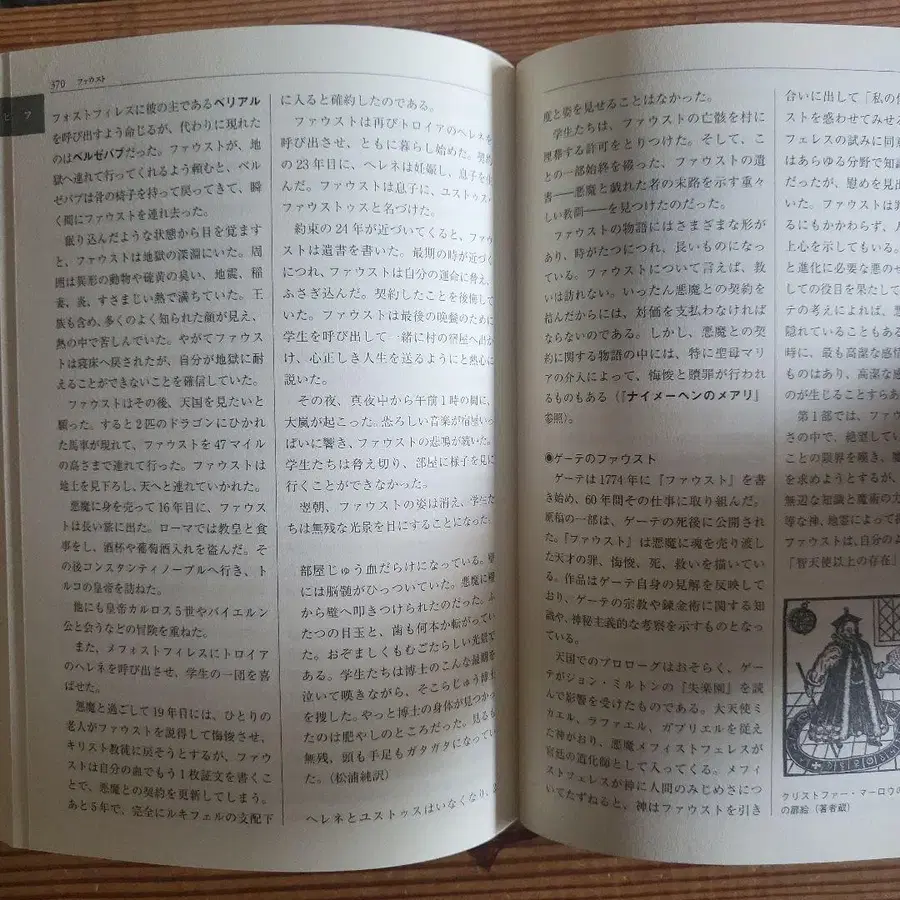 370 ファウスト
ヒ フ
フォストフィレズに彼の主であるベリアル
を呼び出すよう命じるが、代わりに現れた
のはベルゼバブだった。ファウストが、地
獄へ連れて行ってくれるよう頼むと、ベル
ゼバブは骨の椅子を持って戻ってきて、瞬
く間にファウストを連れ去った。
眠り込んだような状態から目を覚ます
と、ファウストは地獄の深淵にいた。周
囲は異形の動物や硫黄の臭い、地震、稲
妻、炎、すさまじい熱で満ちていた。王
族も含め、多くのよく知られた顔が見え、
熱の中で苦しんでいた。やがてファウス
トは寝床へ戻されたが、自分が地獄に耐
えることができないことを確信していた。
ファウストはその後、天国を見たいと
願った。すると2匹のドラゴンにひかれ
た馬車が現れて、ファウストを47マイル
の高さまで連れて行った。ファウストは
地上を見下ろし、天へと連れていかれた。
悪魔に身を売って16年目に、ファウス
トは長い旅に出た。ローマでは教皇と食
事をし、酒杯や葡萄酒入れを盗んだ。そ
の後コンスタンティノープルへ行き、ト
ルコの皇帝を訪ねた。
他にも皇帝カルロス5世やバイエルン
公と会うなどの冒険を重ねた。
また、メフォストフィレスにトロイア
のヘレネを呼び出させ、学生の一団を喜
ばせた。
悪魔と過ごして19年目には、ひとりの
老人がファウストを説得して悔悛させ、
キリスト教徒に戻そうとするが、ファウ
ストは自分の血でもう1枚証文を書くこ
とで、悪魔との契約を更新してしまう。
あと5年で、完全にルキフェルの支配下
に入ると確約したのである。
ファウストは再びトロイアのヘレネを
呼び出させ、ともに暮らし始めた。契約
の23年目に、ヘレネは妊娠し、息子を生
んだ。ファウストは息子に、ユストゥス・
ファウストゥスと名づけた。
約束の24年が近づいてくると、ファウ
ストは遺書を書いた。最期の時が近づく
につれ、ファウストは自分の運命に脅え、
ふさぎ込んだ。契約したことを後悔して
いた。ファウストは最後の晩餐のために
学生を呼び出して一緒に村の宿屋へ出か
け、心正しき人生を送るようにと熱心に
説いた。
その夜、真夜中から午前1時の間に、
大嵐が起こった。恐ろしい音楽が宿屋いっ
ぱいに響き、ファウストの悲鳴が続いた。
学生たちは脅え切り、部屋に様子を見に
行くことができなかった。
翌朝、ファウストの姿は消え、学生た
ちは無残な光景を目にすることになった。
部屋じゅう血だらけになっている。壁
には脳髄がひっついていた。悪魔に壁
から壁へ叩きつけられたのだった。ふ
たつの目玉と、歯も何本か転がってい
た。おぞましくもむごたらしい光景で
ある。学生たちは博士のこんな最期を
泣いて嘆きながら、そこらじゅう博士
を捜した。やっと博士の身体が見つかっ
たのは肥やしのところだった。見るも
無残、頭も手足もガタガタになってい
た。(松浦純訳)
ヘレネとユストゥスはいなくなり、
度と姿を見せることはなかった。
学生たちは、ファウストの亡骸を村に
埋葬する許可をとりつけた。そして、こ
との一部始終を綴った、ファウストの遺
書──悪魔と戯れた者の末路を示す重々
しい教訓──を見つけたのだった。
ファウストの物語にはさまざまな形が
あり、時がたつにつれ、長いものになっ
ている。ファウストについて言えば、救
いは訪れない。いったん悪魔との契約を
結んだからには、対価を支払わなければ
ならないのである。しかし、悪魔との契
約に関する物語の中には、特に聖母マリ
アの介入によって、悔悛と贖罪が行われ
るものもある(『ナイメーヘンのメアリ』
参照)。
●ゲーテのファウスト
ゲーテは1774年に『ファウスト』を書
き始め、60年間その仕事に取り組んだ。
原稿の一部は、ゲーテの死後に公開され
た。『ファウスト』は悪魔に魂を売り渡し
た天才の罪、悔悛、死、救いを描いてい
る。作品はゲーテ自身の見解を反映して
おり、ゲーテの宗教や錬金術に関する知
識や、神秘主義的な考察を示すものとなっ
ている。
天国でのプロローグはおそらく、ゲー
テがジョン・ミルトンの『失楽園』を読
んで影響を受けたものである。大天使ミ
カエル、ラファエル、ガブリエルを従え
た神がおり、悪魔メフィストフェレスが
宮廷の道化師として入ってくる。メフィ
ストフェレスが神に人間のみじめさにつ
いてたずねると、神はファウストを引き
合いに出して「私の
ストを惑わせてみせ
フェレスの試みに同
はあらゆる分野で知
だったが、慰めを見出
いた。ファウストは
るにもかかわらず、人
上心を示してもいる。
と進化に必要な悪のせ
しての役目を果たして
テの考えによれば、悪
隠れていることもある
時に、最も高潔な感情
ものはあり、高潔な感
のが生じることすらあ
第1部では、ファウ
さの中で、絶望してい
ことの限界を嘆き、魔
を求めようとするが、
無辺な知識と魔術の力
等な神、地霊によって
ファウストは、自分のよ
「智天使以上の存在」
クリストファー・マーロウの
の扉絵(著者蔵)